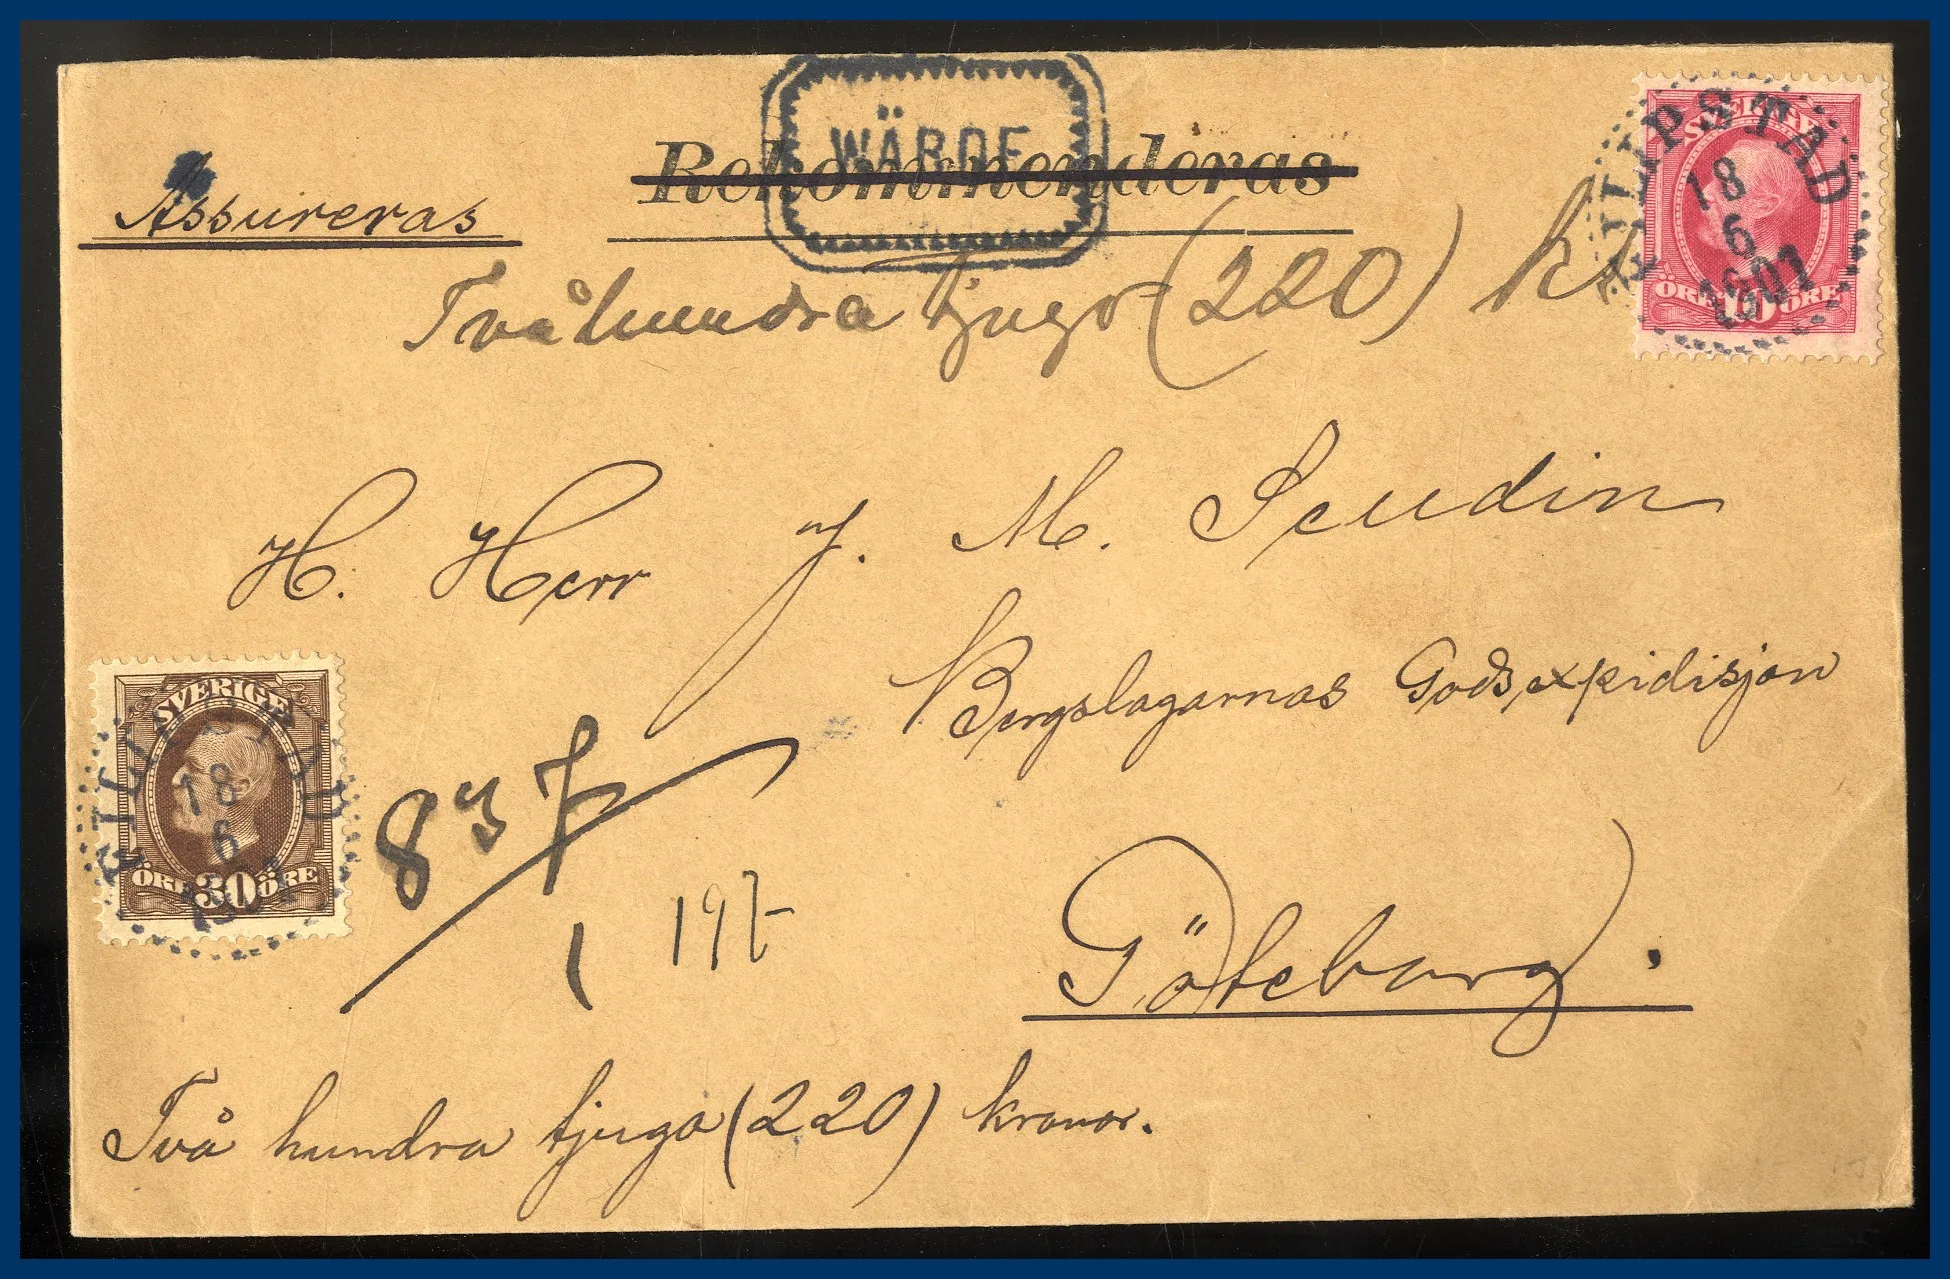 WÄRDE
Rekommenderas
Assureras
Tvåhundra tjugo (220) k
SVERIGE
ÖRE 10 ÖRE
FILIPSTAD
18
6
1901
H. Herr J. M. Scudin
Bergslagarnas Godsexpidisjon
SVERIGE
ÖRE 30 ÖRE
FILIPSTAD
18
6
1901
837
1
197-
Göteborg.
Två hundra tjugo (220) kronor.